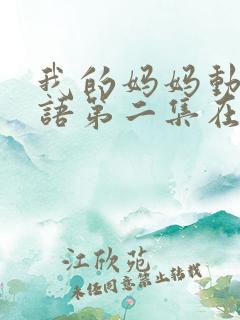 我的妈妈動
語第二集在
江欣苑
未经同意禁止转载